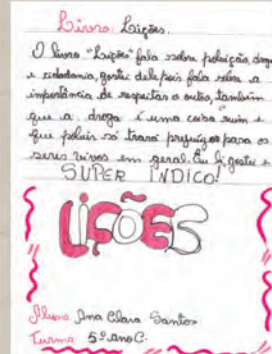 Livro: Lições.
O livro "Lições" fala sobre poluição, droga
e cidadania, gostei dele pois fala sobre a
importância de respeitar o outro, também
que a droga é uma coisa ruim e
que poluir só trará prejuízos para os
seres vivos em geral. Eu li, gostei e
SUPER INDICO!
LIÇÕES
Aluna: Ana Clara Santos
Turma: 5º ano C.